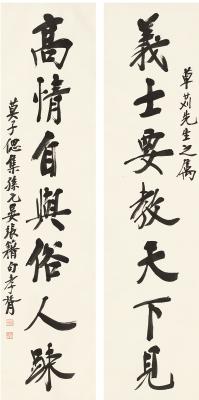 義士要教天下見
草荪先生之屬
高情自與俗人踈
莫子偲集孫元吴張籍句孝胥